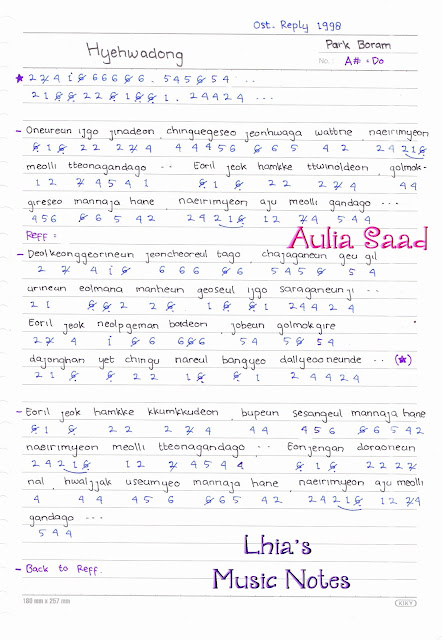 Ost. Reply 1998
Hyehwadong
Park Boram
No. : A# = Do
★ 2 2 4 i 6 6 6 6 6 . 5 4 5 6 5 4 ...
2 1 6 6 2 2 6 1 6 6 1 . 2 4 4 2 4 ...
- Oneureun ijgo jinadeon, chinguegeseo jeonhwaga watbne, naeirimyeon
6 1 6 2 2 2 4 4 4 4 5 6 6 6 5 4 2 2 4 2 1 6
meolli tteonagandago .. Eoril jeok hamkke ttwinoldeon, golmok-
1 2 4 5 4 1 6 1 6 2 2 2 2 4 4 4
gireseo mannaja hane, naeirimyeon aju meolli gandago ...
4 5 6 6 6 5 4 2 2 4 2 1 6 1 2 2 4 5 4 4
Aulia Saad
Reff :
- Deolkeonggeorineun jeoncheoreul tago, chajaganeun geu gil
2 2 4 i 6 6 6 6 6 5 4 5 6 5 4
urineun eolmana manheun geoseul ijgo saraganeunji ..
2 1 6 6 2 2 6 1 6 1 2 4 4 2 4
Eoril jeok neolpgeman boideon, jobeun golmokgire
2 2 4 i 6 6 6 6 6 5 4 5 6 5 4
dajonghan yet chingu nareul bangyeo dallyeooneunde .. (★)
2 1 6 6 2 2 1 6 6 1 2 4 4 2 4
- Eoril jeok hamkke kkumkkudeon, bupeun sesangeul mannaja hane
6 1 6 2 2 2 4 4 4 4 5 6 6 6 5 4 2
naeirimyeon meolli tteonagandago .. Eonjengan doraoneun
2 4 2 1 6 1 2 4 5 4 4 6 1 6 2 2 2 2
nal, hwaljjak useumyeo mannaja hane, naeirimyeon aju meolli
4 4 4 4 5 6 6 6 5 4 2 2 4 2 1 6 1 2 2 4
gandago ...
5 4 4
Lhia's
- Back to Reff.
Music Notes
180 mm x 257 mm
KIKY